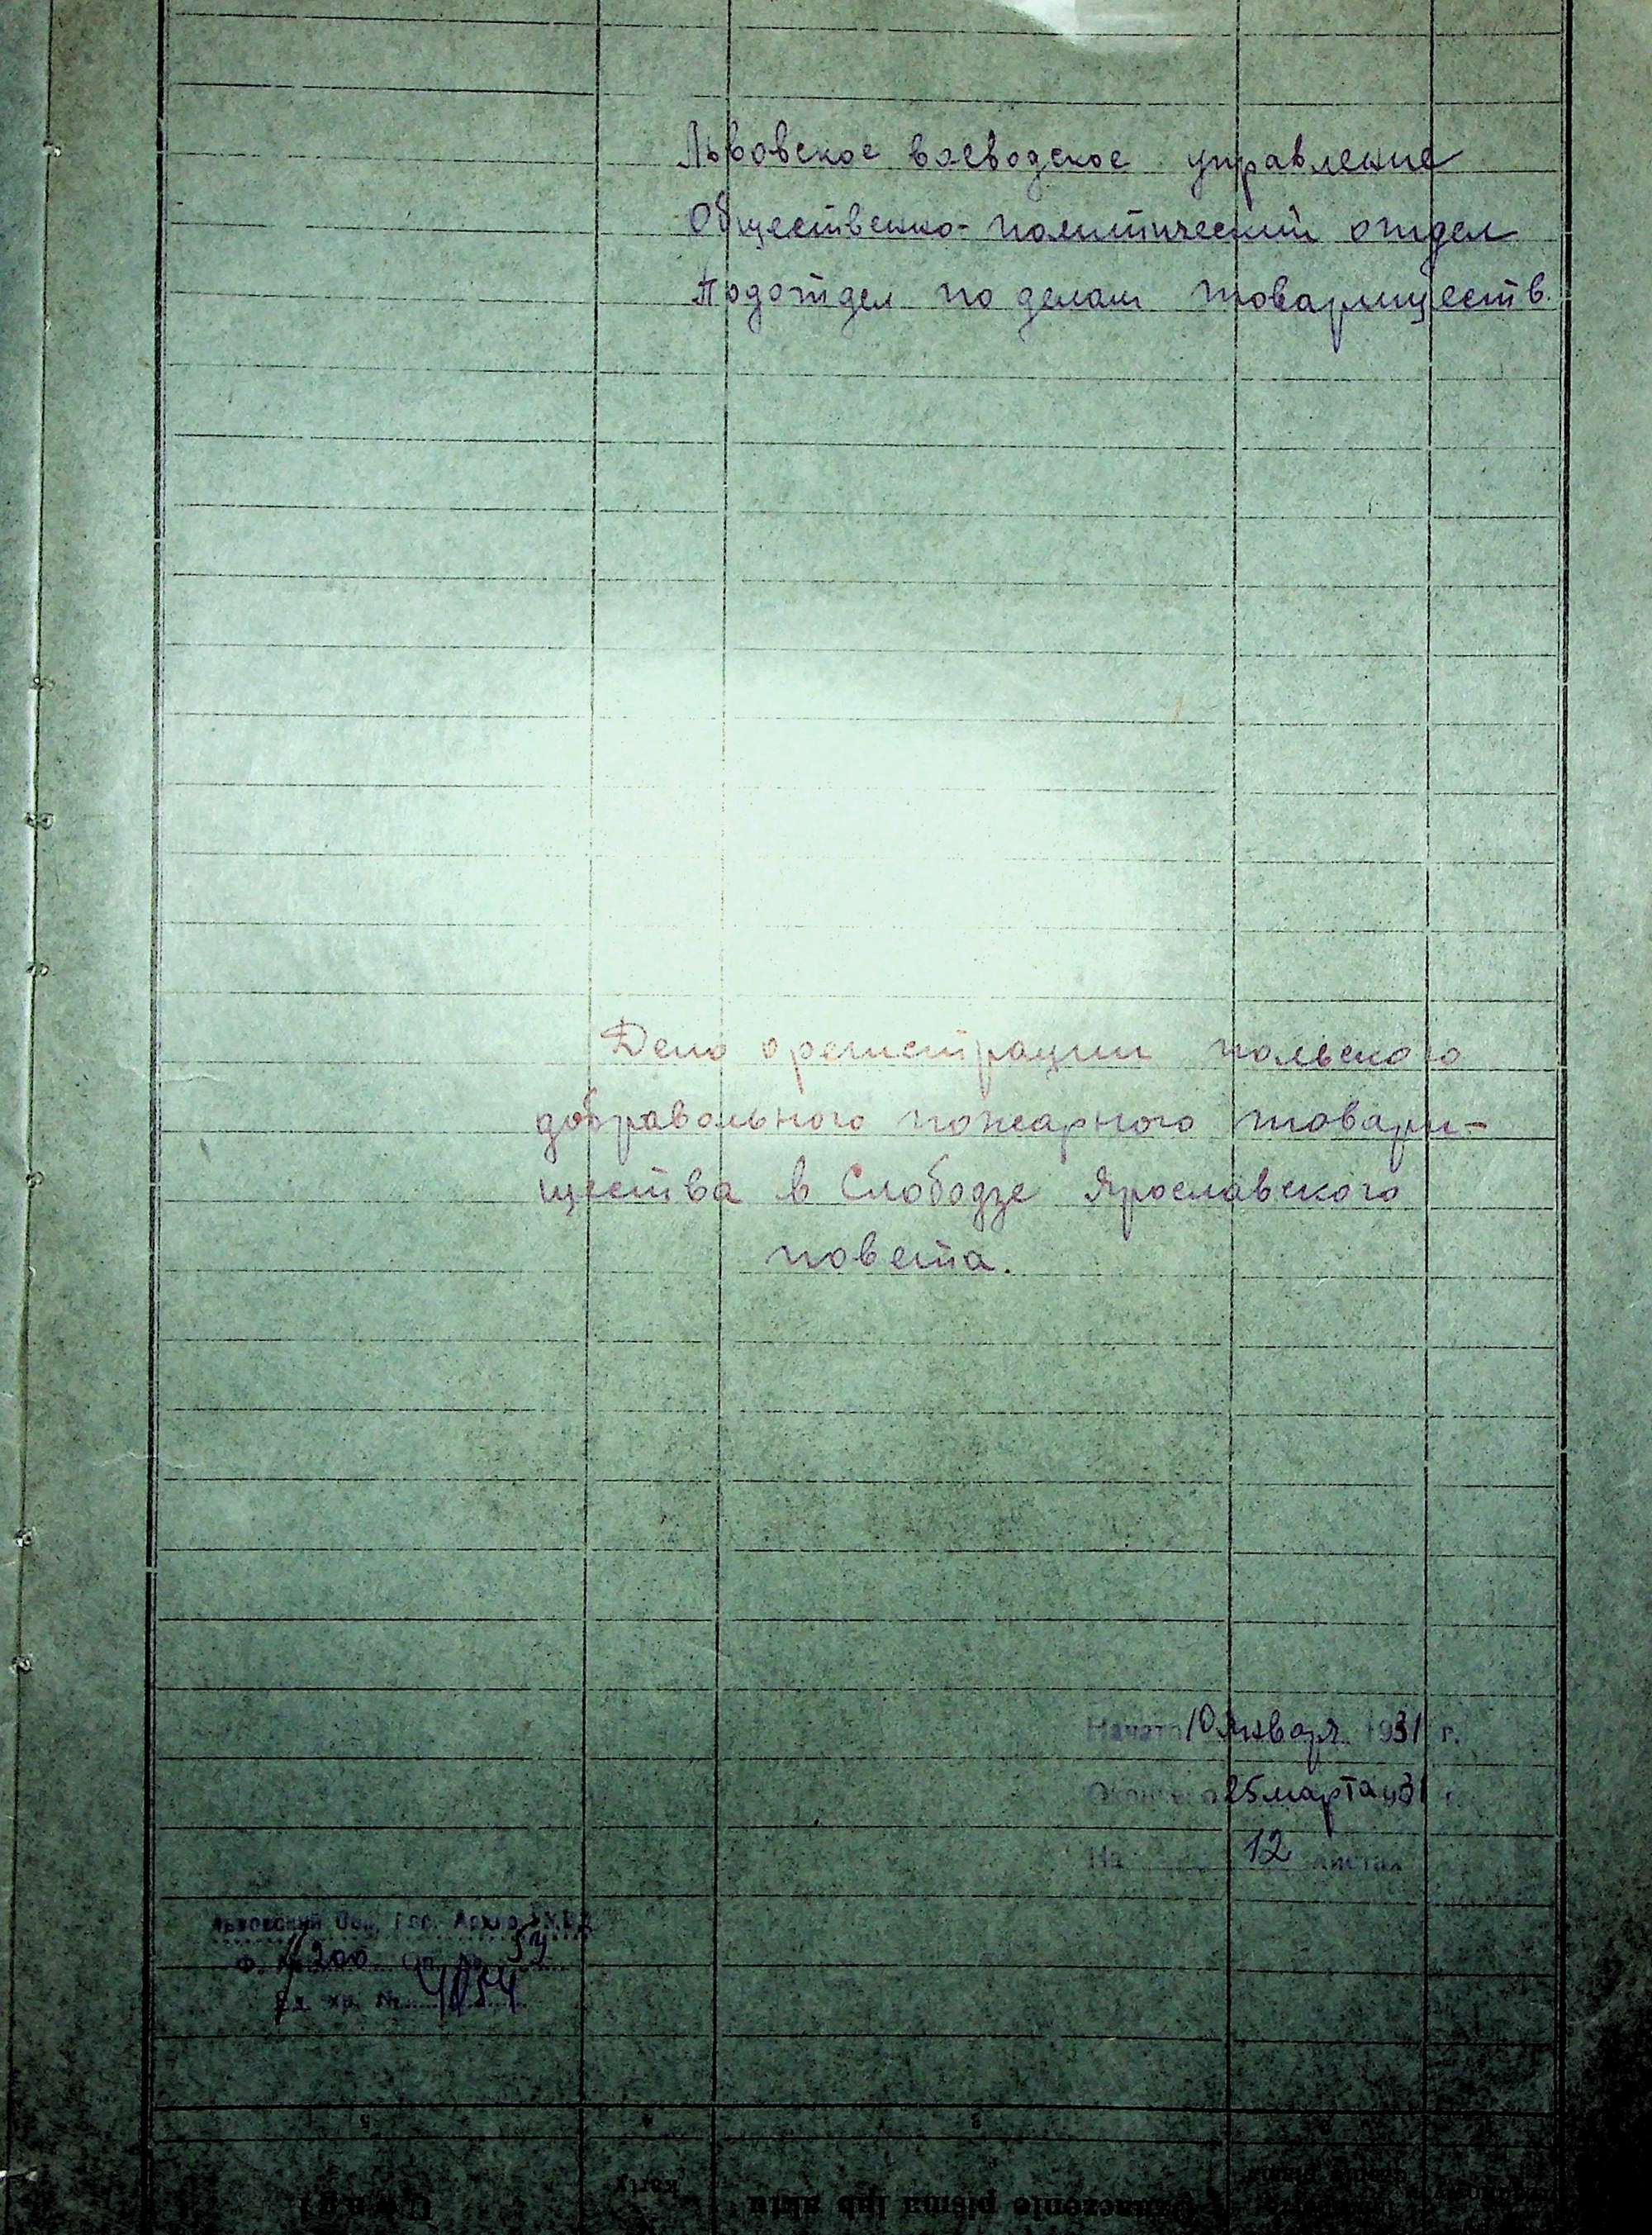 Львовское воеводское управление
Общественно-политический отдел
Подотдел по делам товариществ.
Дело о регистрации польского
добравольного пожарного товари-
щества в Слободзе Ярославского
повета.
Начато 10 января 1931 г.
25 марта 31 г.
На 12 листах
Львовский Обл. Гос. Архив
Ф. № 200 Оп. №
Ед. хр. №
5 4 3
Oznaczenie pisma lub aktu
karty